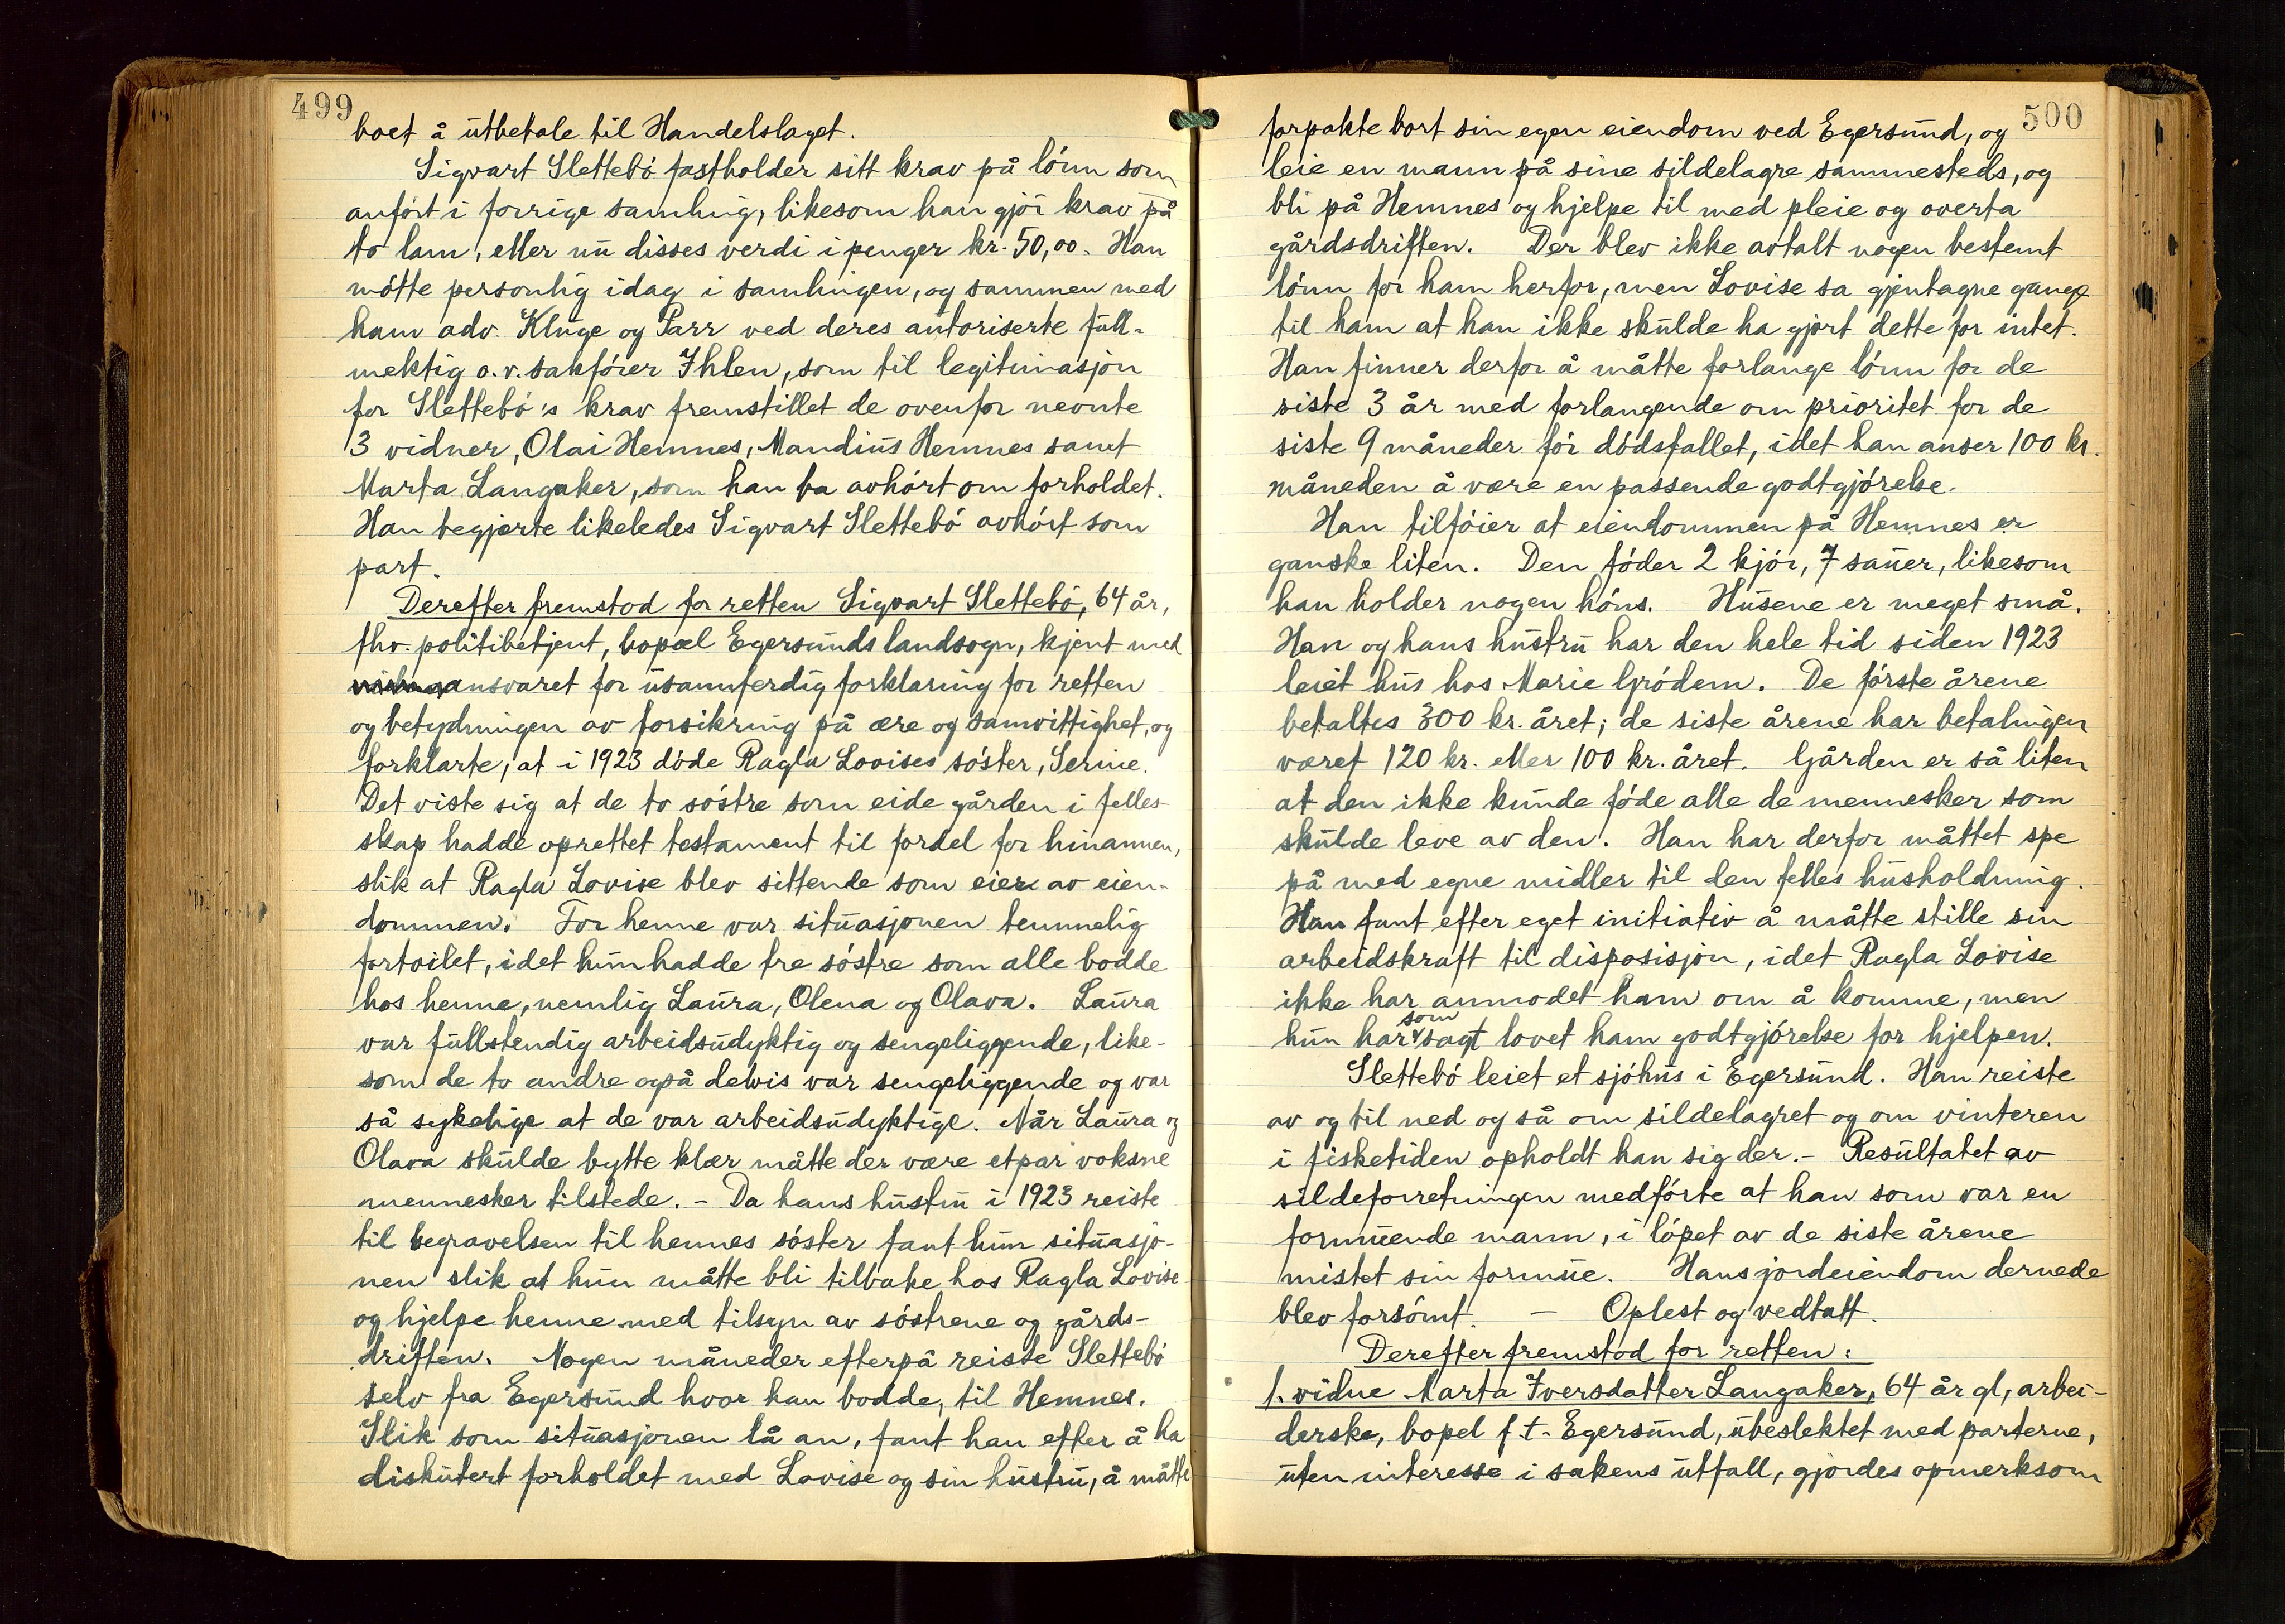 499
boet å utbetale til Handelslaget.
Sigvart Slettebö fastholder sitt krav på lönn som
anfört i forrige samling, likesom han gjör krav på
to lam, eller nu disses verdi i penger kr. 50,00. Han
mötte personlig idag i samlingen, og sammen med
ham adv. Kluge og Parr ved deres autoriserte full-
mektig o.r.sakförer Ihlen, som til legitimasjon
for Slettebö's krav fremstillet de ovenfor nevnte
3 vidner, Olai Hemnes, Mandius Hemnes samt
Marta Langaker, som han ba avhört om forholdet.
Han begjærte likeledes Sigvart Slettebö avhört som
part.
Derefter fremstod for retten Sigvart Slettebö, 64 år,
fhv. politibetjent, bopæl Egersunds landsogn, kjent med
ansvaret for usannferdig forklaring for retten
og betydningen av forsikring på ære og samvittighet, og
forklarte, at i 1923 döde Ragla Lovises söster, Serine.
Det viste sig at de to söstre som eide gården i felles
skap hadde oprettet testament til fordel for hinannen,
slik at Ragla Lovise blev sittende som eier av eien-
dommen. For henne var situasjonen temmelig
fortvilet, idet hun hadde tre söstre som alle bodde
hos henne, nemlig Laura, Olena og Olava. Laura
var fullstendig arbeidsudyktig og sengeliggende, like-
som de to andre også delvis var sengeliggende og var
så sykelige at de var arbeidsudyktige. Når Laura og
Olava skulde bytte klær måtte der være etpar voksne
mennesker tilstede. - Da hans hustru i 1923 reiste
til begravelsen til hennes söster fant hun situasjo-
nen slik at hun måtte bli tilbake hos Ragla Lovise
og hjelpe henne med tilsyn av söstrene og gårds-
driften. Nogen måneder efterpå reiste Slettebö
selv fra Egersund hvor han bodde, til Hemnes.
Slik som situasjonen lå an, fant han efter å ha
diskutert forholdet med Lovise og sin hustru, å måtte
500
forpakte bort sin egen eiendom ved Egersund, og
leie en mann på sine sildelagre sammesteds, og
bli på Hemnes og hjelpe til med pleie og overta
gårdsdriften. Der blev ikke avtalt nogen bestemt
lönn for ham herfor, men Lovise sa gjentagne gange
til ham at han ikke skulde ha gjort dette for intet.
Han finner derfor å måtte forlange lönn for de
siste 3 år med forlangende om prioritet for de
siste 9 måneder för dödsfallet, idet han anser 100 kr.
måneden å være en passende godtgjörelse.
Han tilföier at eiendommen på Hemnes er
ganske liten. Den föder 2 kjör, 7 sauer, likesom
han holder nogen höns. Husene er meget små.
Han og hans hustru har den hele tid siden 1923
leiet hus hos Marie Grödem. De förste årene
betaltes 300 kr. året; de siste årene har betalingen
været 120 kr. eller 100 kr. året. Gården er så liten
at den ikke kunde föde alle de mennesker som
skulde leve av den. Han har derfor måttet spe
på med egne midler til den felles husholdning.
Han fant efter eget initiativ å måtte stille sin
arbeidskraft til disposisjon, idet Ragla Lovise
ikke har anmodet ham om å komme, men
hun har som sagt lovet ham godtgjörelse for hjelpen.
Slettebö leiet et sjöhus i Egersund. Han reiste
av og til ned og så om sildelagret og om vinteren
i fisketiden opholdt han sig der. - Resultatet av
sildeforretningen medförte at han som var en
formuende mann, i löpet av de siste årene
mistet sin formue. Hans jordeiendom dernede
blev forsömt. - Oplest og vedtatt.
Derefter fremstod for retten:
1. vidne Marta Iversdatter Langaker, 64 år gl, arbei-
derske, bopel f.t. Egersund, ubeslektet med parterne,
uten interesse i sakens utfall, gjordes opmerksom